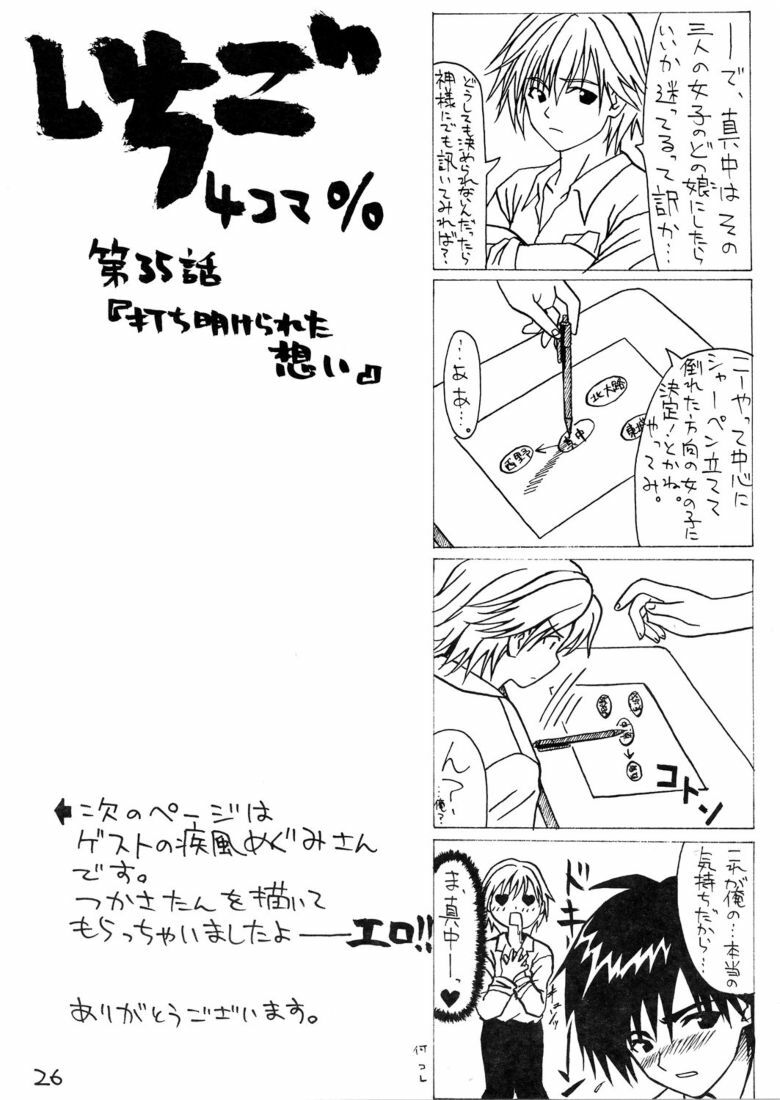 いちご
4コマ%
第35話
『打ち明けられた
想い』
ーで、真中はその
三人の女子のどの娘にしたら
いいか迷ってるって訳か…
どうしても決められないんだったら
神様にでも訊いてみれば？
こーやって中心に
シャーペン立てて
倒れた方向の女の子に
決定！とかね。
やってみ。
…ああ…。
北大路
東城
真中
西野
コトンッ
ん？
…俺？
これが俺の…本当の
気持ちだから…
ドキーン
ま、真中ーっ♥
何コレ
次のページは
ゲストの疾風めぐみさん
です。
つかさたんを描いて
もらっちゃいましたよ──エロ!!
ありがとうございます。
26